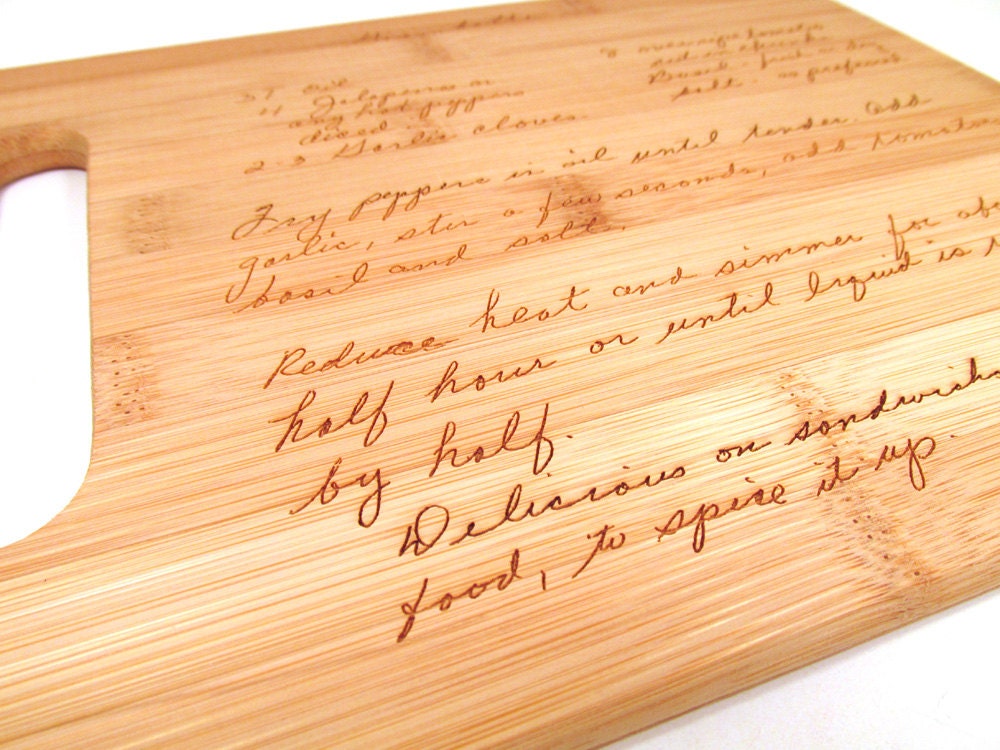 oil
Jalapeno or
any hot peppers
diced
2-3 Garlic cloves.
overripe tomato
Basil - fresh or dry
salt - as preferred
Fry peppers in oil until tender. Add
garlic, stir a few seconds, add tomatoes
basil and salt.
Reduce heat and simmer for
half hour or until liquid is
by half.
Delicious on
food, to spice it up.